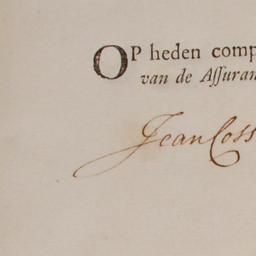 OP heden comp
van de Aſſuran
Jean Coss